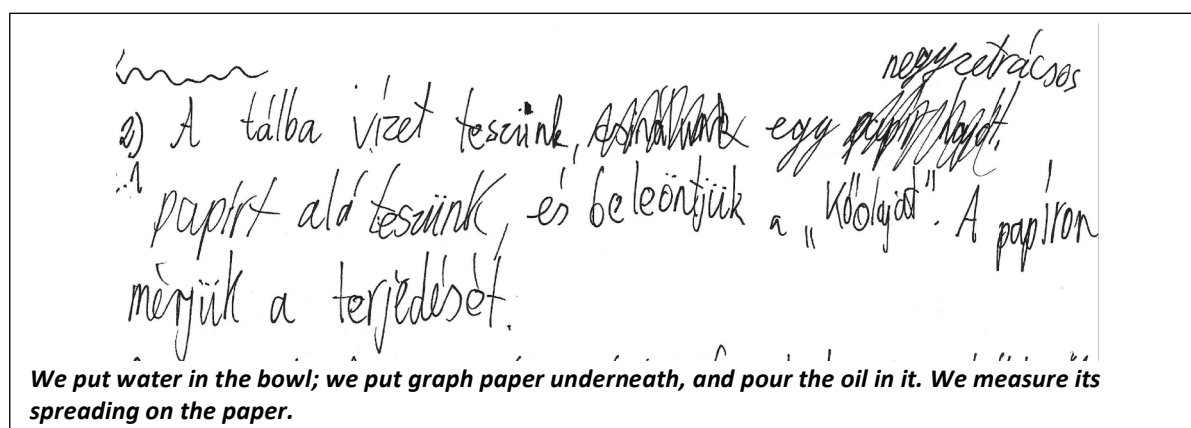 négyzetrácsos
2) A tálba vizet teszünk, egy
papírt alá teszünk, és beleöntjük a „Kőolajat”. A papíron
mérjük a terjedését.
We put water in the bowl; we put graph paper underneath, and pour the oil in it. We measure its
spreading on the paper.